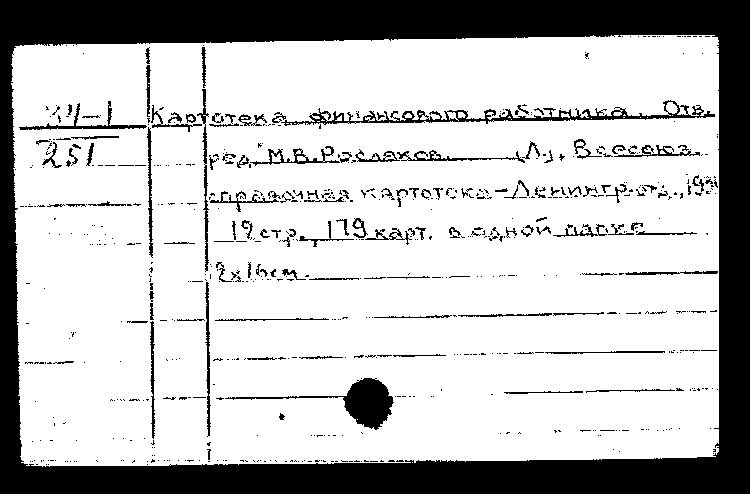 34-1 Картотека финансового работника. Отв.
251 ред. М.В. Росляков. (Л.), Всесоюз.
справочная картотека-Ленингр. отд., 193
12 стр., 179 карт. в одной папке
12х16см.